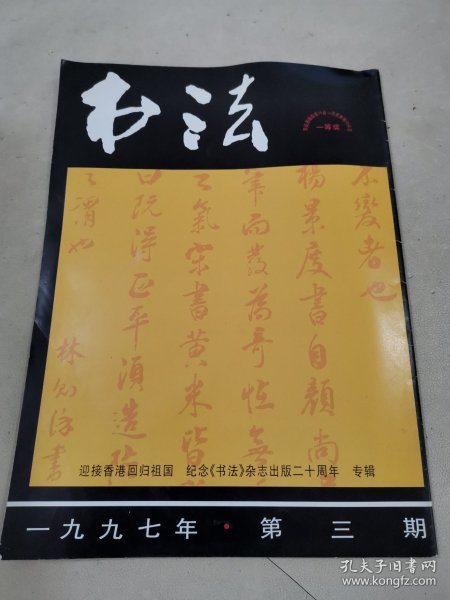 书法
一等奖
余变者也
杨景度书自颜尚
常而发为奇怪无
之气宋书黄米皆
口既得正平须造
之谓也
林则徐书
迎接香港回归祖国 纪念《书法》杂志出版二十周年 专辑
一九九七年·第三期
孔夫子旧书网
www.kongfz.com